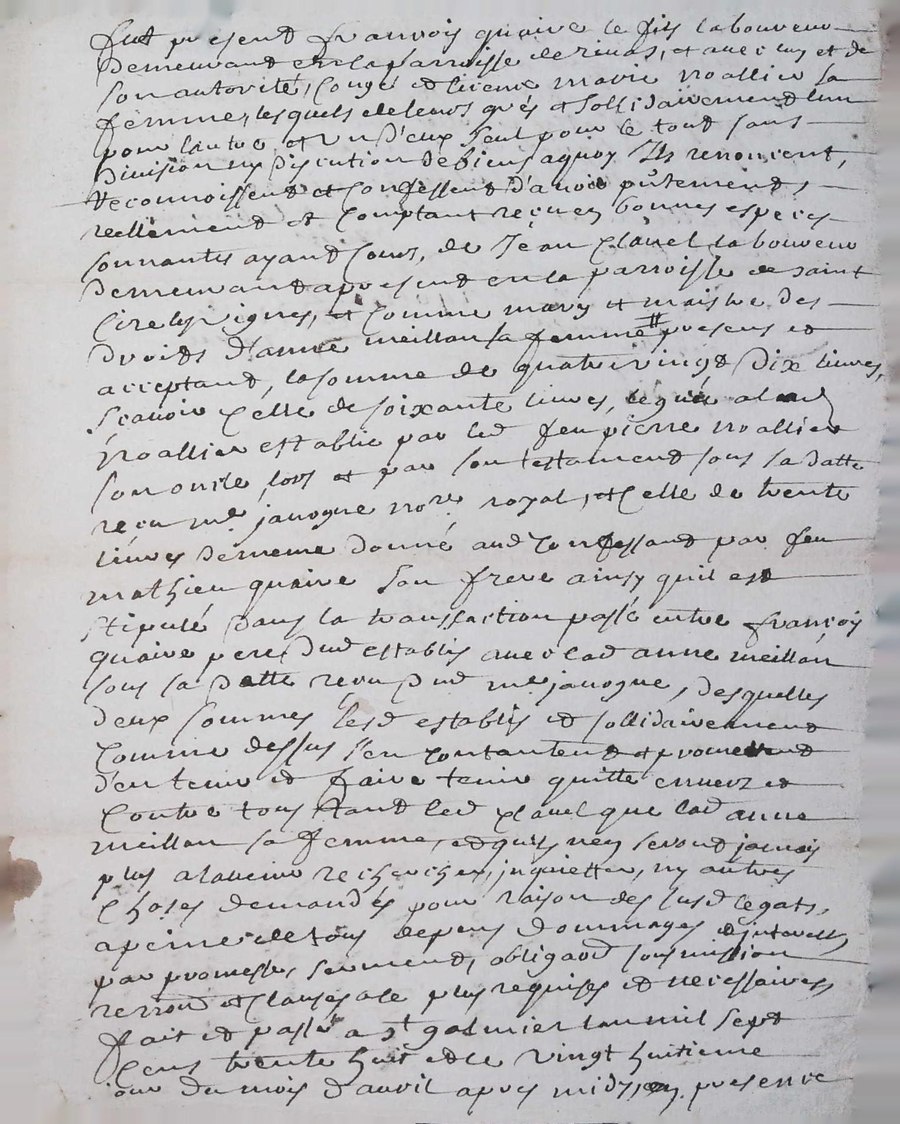 fut present françois quaire le fils laboureur
demeurant en la parroisse de rivas, et avec luy et de
son autorité, congé et licence marie noallier sa
femme, lesquels de leurs grés et sollidairement l'un
pour l'autre et un d'eux seul pour le tout sans
division ny discution de biens aquoy ils renoncent,
reconnoissent et confessent d'avoir putement,
reellement et comptant reçu en bonnes especes
sonnantes ayand cours, de Jean clavel laboureur
demeurand apresent en la parroisse de saint
Cire les vignes, et comme mary et maistre des
droits d'anne meillan sa femme # presens et
acceptand, la somme de quatre vingt dix livres,
sçavoir celle de soixante livres, leguée a lad
Noallier establie par led feu pierre noallier
son oncle, lors et par son testament sous sa datte
reçu me janogue nore royal, et celle de trente
livres demême donné aud confessand par feu
mathieu quaire son frere ainsy quil est
stipulé dans la transaction passé entre françois
quaire pere dud establis avec lad anne meillan
sous sa datte reçu dud me janogue, desquelles
deux sommes lesd establis et sollidairement
comme dessus s'en contantent et promettend
d'en tenir et faire tenir quitte envers et
contre tous tand led clavel que lad anne
meillan sa femme, et quils n'en serond jamais
plus a lavenir recherchés, inquiettés, ny autres
choses demandés pour raison des susd legats,
a peine de tous depens dommages et interests,
par promesses, serment, obligaon soumission
renon et clauses ale plus requises et necessaires,
fait et passé a st galmier lan mil sept
cens trente huit et le vingt huitieme
jour du mois d'avril apres midy, en presence